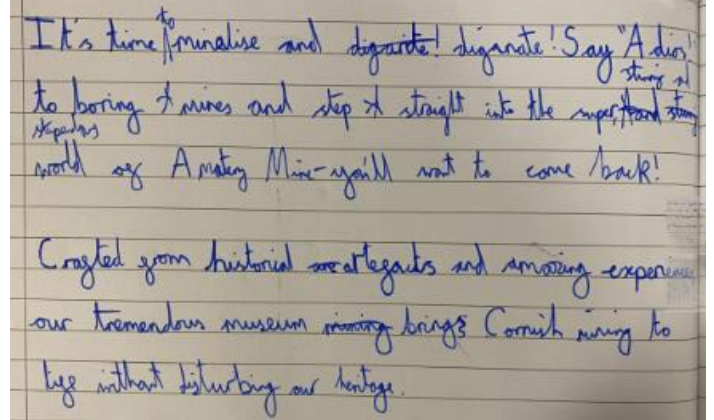 It's time to minalise and diganite! diganate! Say "Adios"
to boring mines and step straight into the super, strong and
stupendous
world of Amatery Mine - you'll want to come back!
Crafted from historial artegacts and amazing experience
our tremendous museum mining brings Cornish mining to
lige without disturbing our heritage.